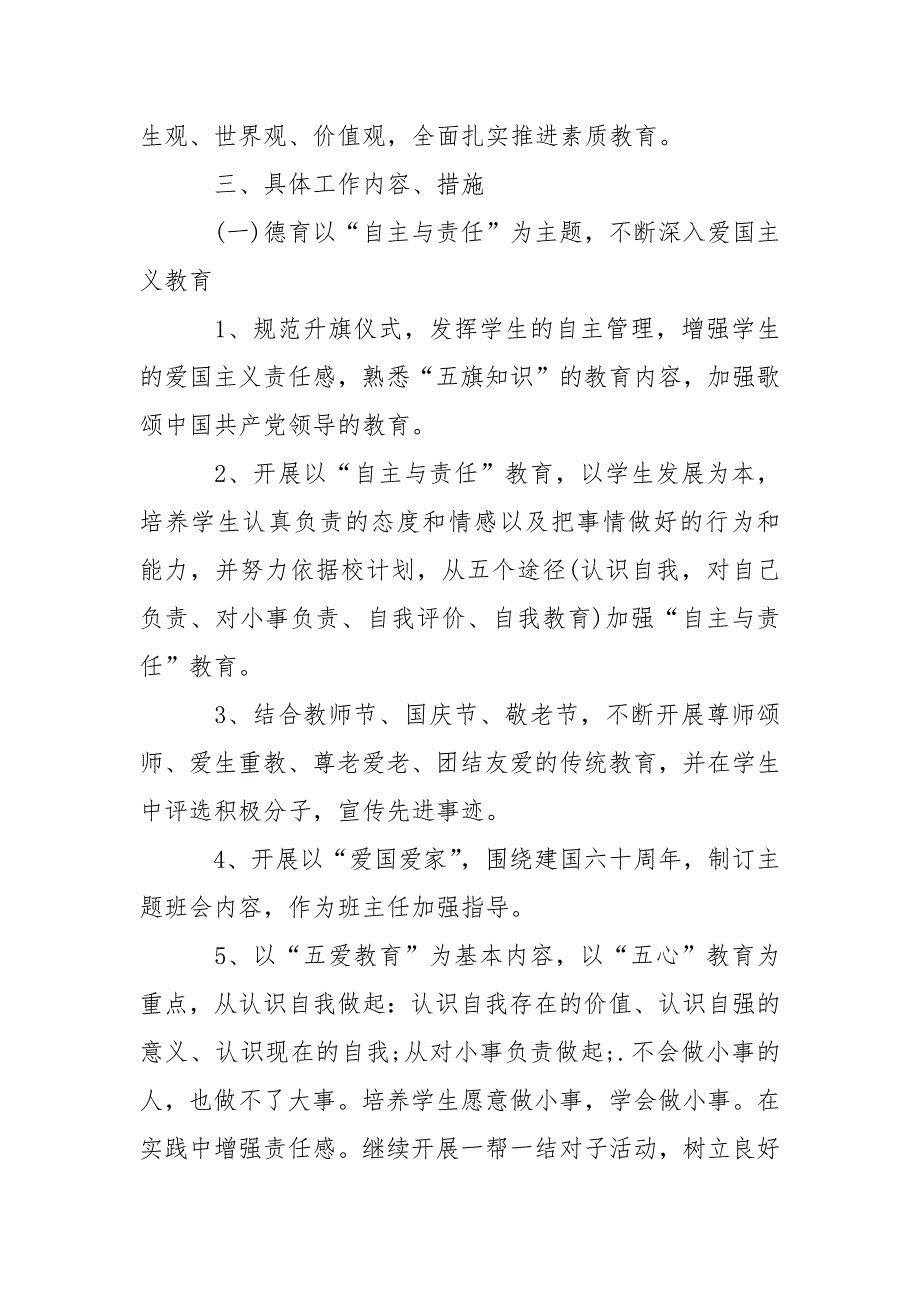 生观、世界观、价值观，全面扎实推进素质教育。
三、具体工作内容、措施
(一)德育以“自主与责任”为主题，不断深入爱国主
义教育
1、规范升旗仪式，发挥学生的自主管理，增强学生
的爱国主义责任感，熟悉“五旗知识”的教育内容，加强歌
颂中国共产党领导的教育。
2、开展以“自主与责任”教育，以学生发展为本，
培养学生认真负责的态度和情感以及把事情做好的行为和
能力，并努力依据校计划，从五个途径(认识自我，对自己
负责、对小事负责、自我评价、自我教育)加强“自主与责
任”教育。
3、结合教师节、国庆节、敬老节，不断开展尊师颂
师、爱生重教、尊老爱老、团结友爱的传统教育，并在学生
中评选积极分子，宣传先进事迹。
4、开展以“爱国爱家”，围绕建国六十周年，制订主
题班会内容，作为班主任加强指导。
5、以“五爱教育”为基本内容，以“五心”教育为
重点，从认识自我做起：认识自我存在的价值、认识自强的
意义、认识现在的自我;从对小事负责做起;.不会做小事的
人，也做不了大事。培养学生愿意做小事，学会做小事。在
实践中增强责任感。继续开展一帮一结对子活动，树立良好